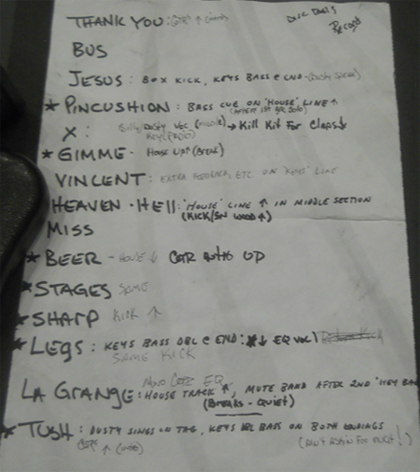 THANK YOU: GTR ↑ (INTRO)
Record
BUS
JESUS: BOX KICK, KEYS BASS @ END - (DUSTY SPEAK)
★ PINCUSHION: BASS CUE ON 'HOUSE' LINE ↑
X: Billy, Dusty Voc (middle) → Kill Kit For Claps ↓
★ GIMME - House Up↑ (Break)
VINCENT: EXTRA FEEDBACK, ETC ON 'KEYS' LINE
HEAVEN - HELL: 'HOUSE' LINE ↑ IN MIDDLE SECTION
(KICK/SN ↑)
MISS
★ BEER - HOUSE ↓ GTR UP
★ STAGES SAME
★ SHARP KICK ↑
★ LEGS: KEYS BASS DBL @ END: ↓ EQ VOC
SAME KICK
MONO GTR EQ
LA GRANGE: HOUSE TRACK ↑, MUTE BAND AFTER 2ND 'HEY
(BREAKS - QUIET)
★ TUSH: DUSTY SINGS ON TAG, KEYS DBL BASS ON BOTH ENDINGS
GTR ↑ (INTRO)